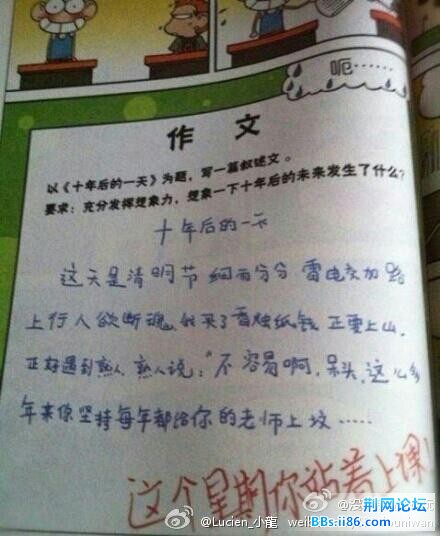 呃……
作 文
以《十年后的一天》为题，写一篇叙述文。
要求：充分发挥想象力，想象一下十年后的未来发生了什么？
十年后的一天
这天是清明节 细雨分分 雷电交加 路
上行人欲断魂，我买了香烛纸钱 正要上山，
正好遇到熟人，熟人说：“不容易啊，呆头，这么多
年来你坚持每年都给你的老师上坟……
这个星期你站着上课！
@Lucien_小龍
荆网论坛
BBs.ii86.com